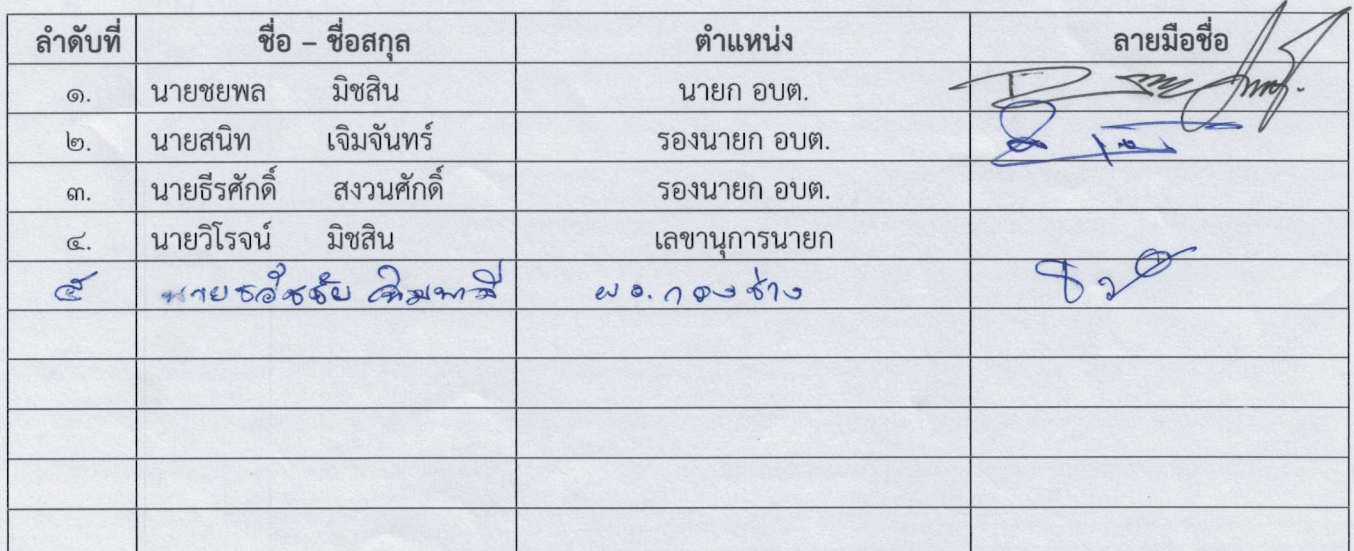 ลำดับที่ ชื่อ – ชื่อสกุล ตำแหน่ง ลายมือชื่อ
๑. นายชยพล มิชสิน นายก อบต.
๒. นายสนิท เจิมจันทร์ รองนายก อบต.
๓. นายธีรศักดิ์ สงวนศักดิ์ รองนายก อบต.
๔. นายวิโรจน์ มิชสิน เลขานุการนายก
๕ นายธวัชชัย ผอ.กองช่าง